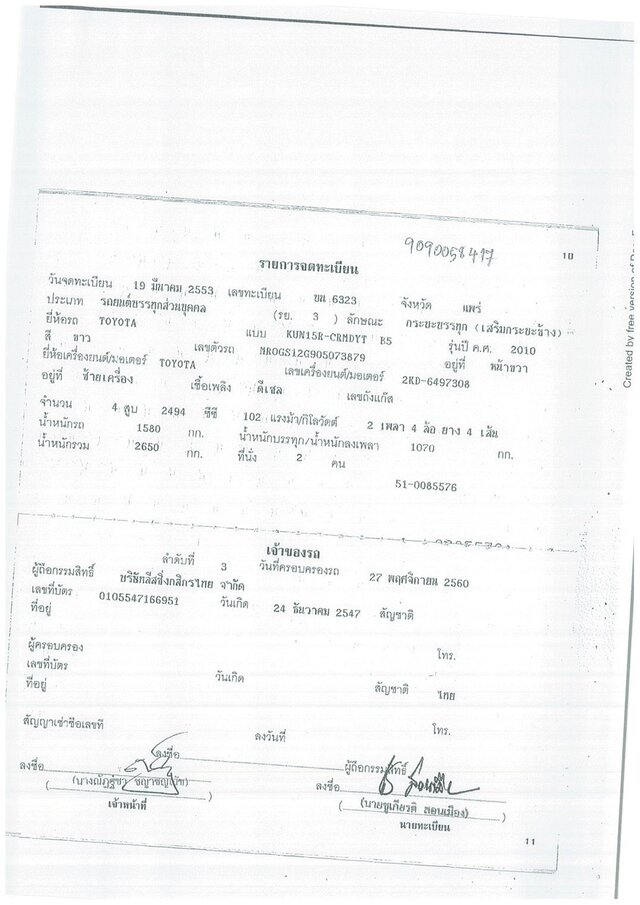 9090058417
10
รายการจดทะเบียน
วันจดทะเบียน 19 มีนาคม 2553 เลขทะเบียน ขน 6323 จังหวัด แพร่
ประเภท รถยนต์บรรทุกส่วนบุคคล (รย. 3 ) ลักษณะ กระบะบรรทุก (เสริมกระบะข้าง)
ยี่ห้อรถ TOYOTA แบบ KUN15R-CRMDYT B5 รุ่นปี ค.ศ. 2010
สี ขาว เลขตัวรถ MROGS12G905073879 อยู่ที่ หน้าขวา
ยี่ห้อเครื่องยนต์/มอเตอร์ TOYOTA เลขเครื่องยนต์/มอเตอร์ 2KD-6497308
อยู่ที่ ซ้ายเครื่อง เชื้อเพลิง ดีเซล เลขถังแก๊ส
จำนวน 4 สูบ 2494 ซีซี 102 แรงม้า/กิโลวัตต์ 2 เพลา 4 ล้อ ยาง 4 เส้น
น้ำหนักรถ 1580 กก. น้ำหนักบรรทุก/น้ำหนักลงเพลา 1070 กก.
น้ำหนักรวม 2650 กก. ที่นั่ง 2 คน
51-0085576
เจ้าของรถ
ลำดับที่ 3 วันที่ครอบครองรถ 27 พฤศจิกายน 2560
ผู้ถือกรรมสิทธิ์ บริษัทลีสซิ่งกสิกรไทย จำกัด
เลขที่บัตร 0105547166951 วันเกิด 24 ธันวาคม 2547 สัญชาติ
ที่อยู่
โทร.
ผู้ครอบครอง
เลขที่บัตร วันเกิด สัญชาติ ไทย
ที่อยู่
โทร.
สัญญาเช่าซื้อเลขที่ ลงวันที่
ลงชื่อ ผู้ถือกรรมสิทธิ์
ลงชื่อ ลงชื่อ
เจ้าหน้าที่ นายทะเบียน
11
Created by free version of